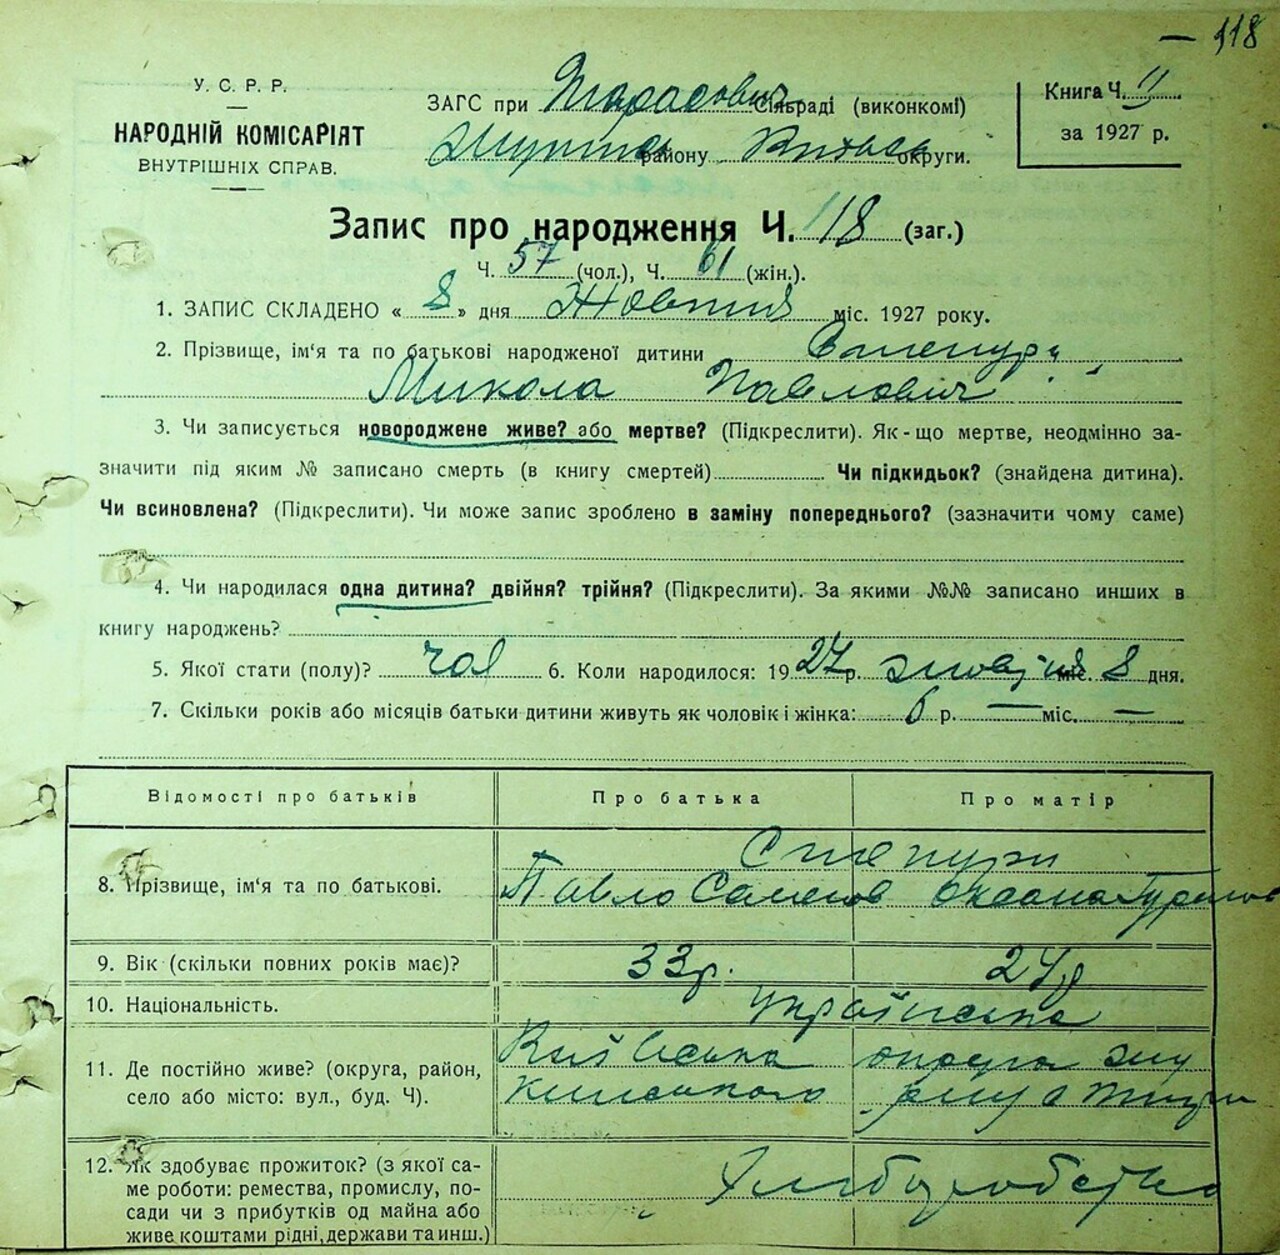 — 118
У. С. Р. Р.
НАРОДНІЙ КОМІСАРІЯТ
ВНУТРІШНІХ СПРАВ.
ЗАГС при Тарасович Сільраді (виконкомі)
району Київськ округи.
Книга Ч. II
за 1927 р.
Запис про народження Ч. 118 (заг.)
Ч. 57 (чол.), Ч. 61 (жін.).
1. ЗАПИС СКЛАДЕНО « 8 » дня Жовтня міс. 1927 року.
2. Прізвище, ім'я та по батькові народженої дитини
Микола Павлович
3. Чи записується новороджене живе? або мертве? (Підкреслити). Як-що мертве, неодмінно за-
значити під яким № записано смерть (в книгу смертей) Чи підкидьок? (знайдена дитина).
Чи всиновлена? (Підкреслити). Чи може запис зроблено в заміну попереднього? (зазначити чому саме)
4. Чи народилася одна дитина? двійня? трійня? (Підкреслити). За якими №№ записано инших в
книгу народжень?
5. Якої стати (полу)? чол 6. Коли народилося: 1927 р. жовтня міс. 8 дня.
7. Скільки років або місяців батьки дитини живуть як чоловік і жінка: 6 р. — міс. —
Відомості про батьків Про батька Про матір
Степури
8. Прізвище, ім'я та по батькові. Павло Семенов Оксана
9. Вік (скільки повних років має)? 33 р. 24 р
10. Національність. українська
11. Де постійно живе? (округа, район, Київська округа
село або місто: вул., буд. Ч).
12. Як здобуває прожиток? (з якої са- Хліборобство
ме роботи: ремества, промислу, по-
сади чи з прибутків од майна або
живе коштами рідні, держави та инш.)